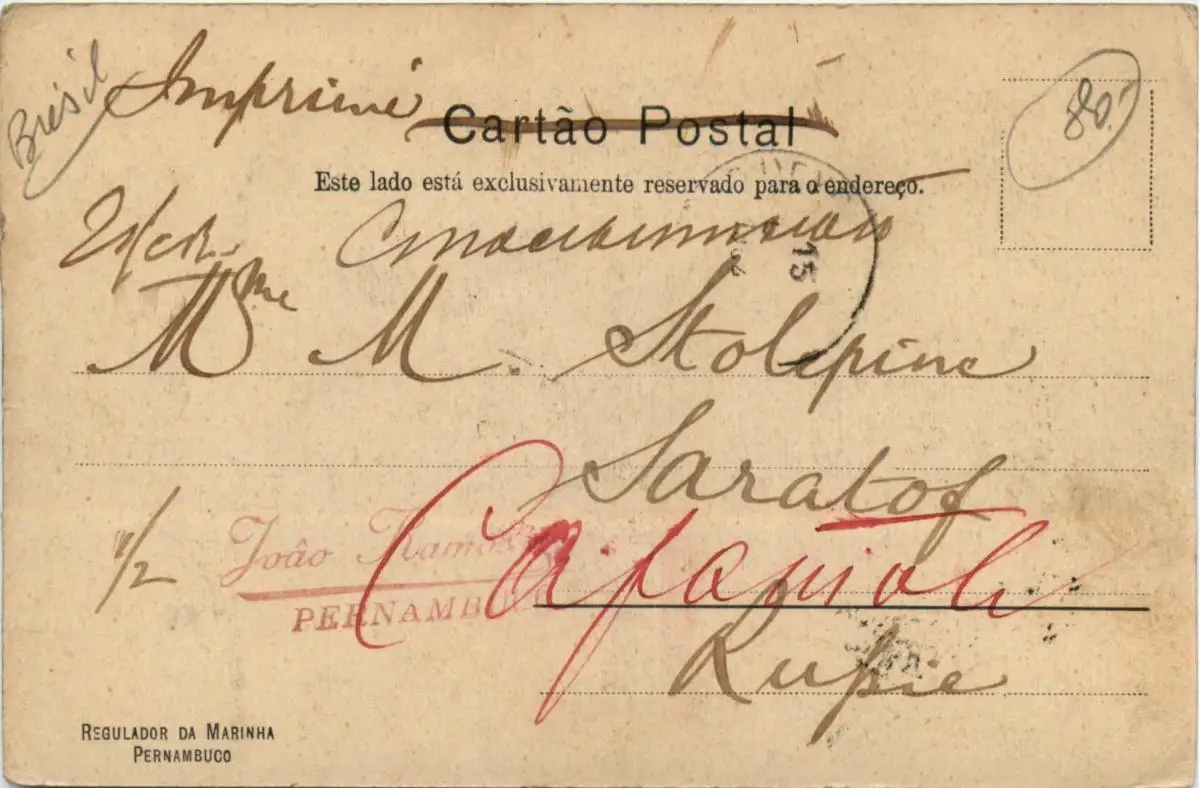 Brésil
Imprimé
Cartão Postal
80.-
Este lado está exclusivamente reservado para o endereço.
15
Mme M. Stolepine
Saratof
1/2
João Ramos
PERNAMBUCO
Саратовъ
Russie
REGULADOR DA MARINHA
PERNAMBUCO